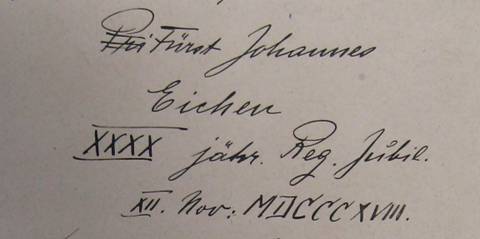 Pri Fürst Johannes
Eichen
XXXX jähr. Reg. Jubil.
XII. Nov: MDCCCXVIII.